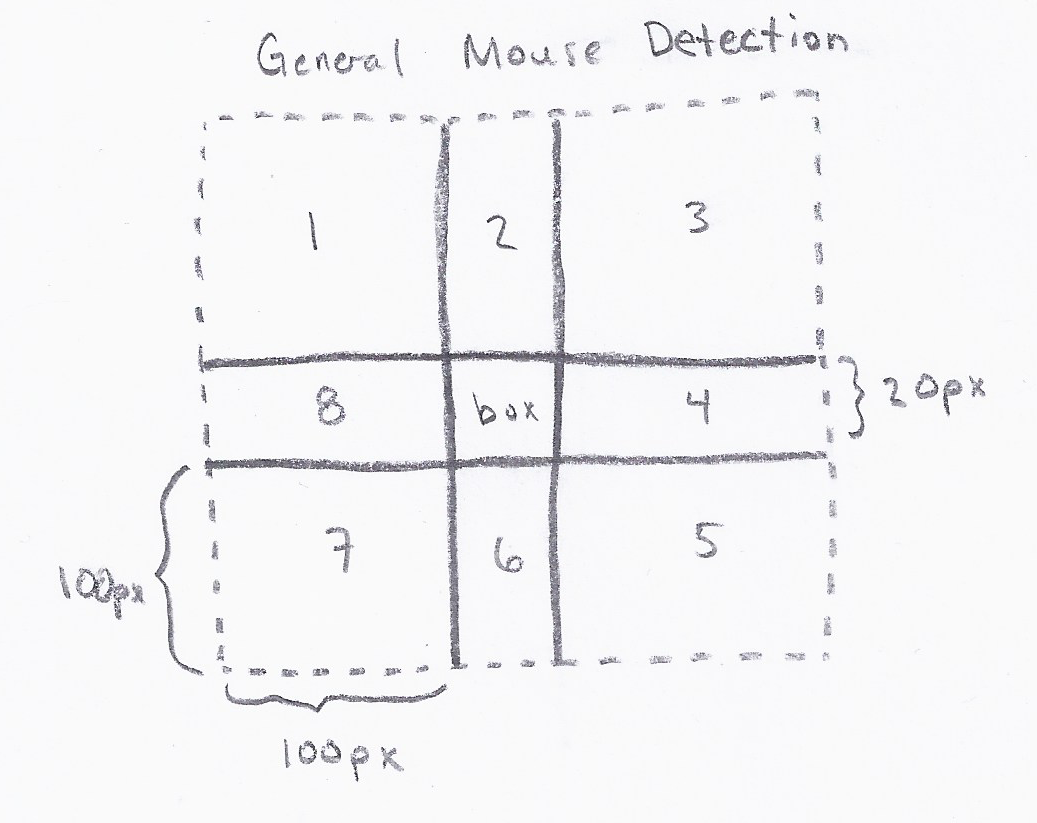 General Mouse Detection
1 2 3
8 box 4 20px
7 6 5
100px
100px